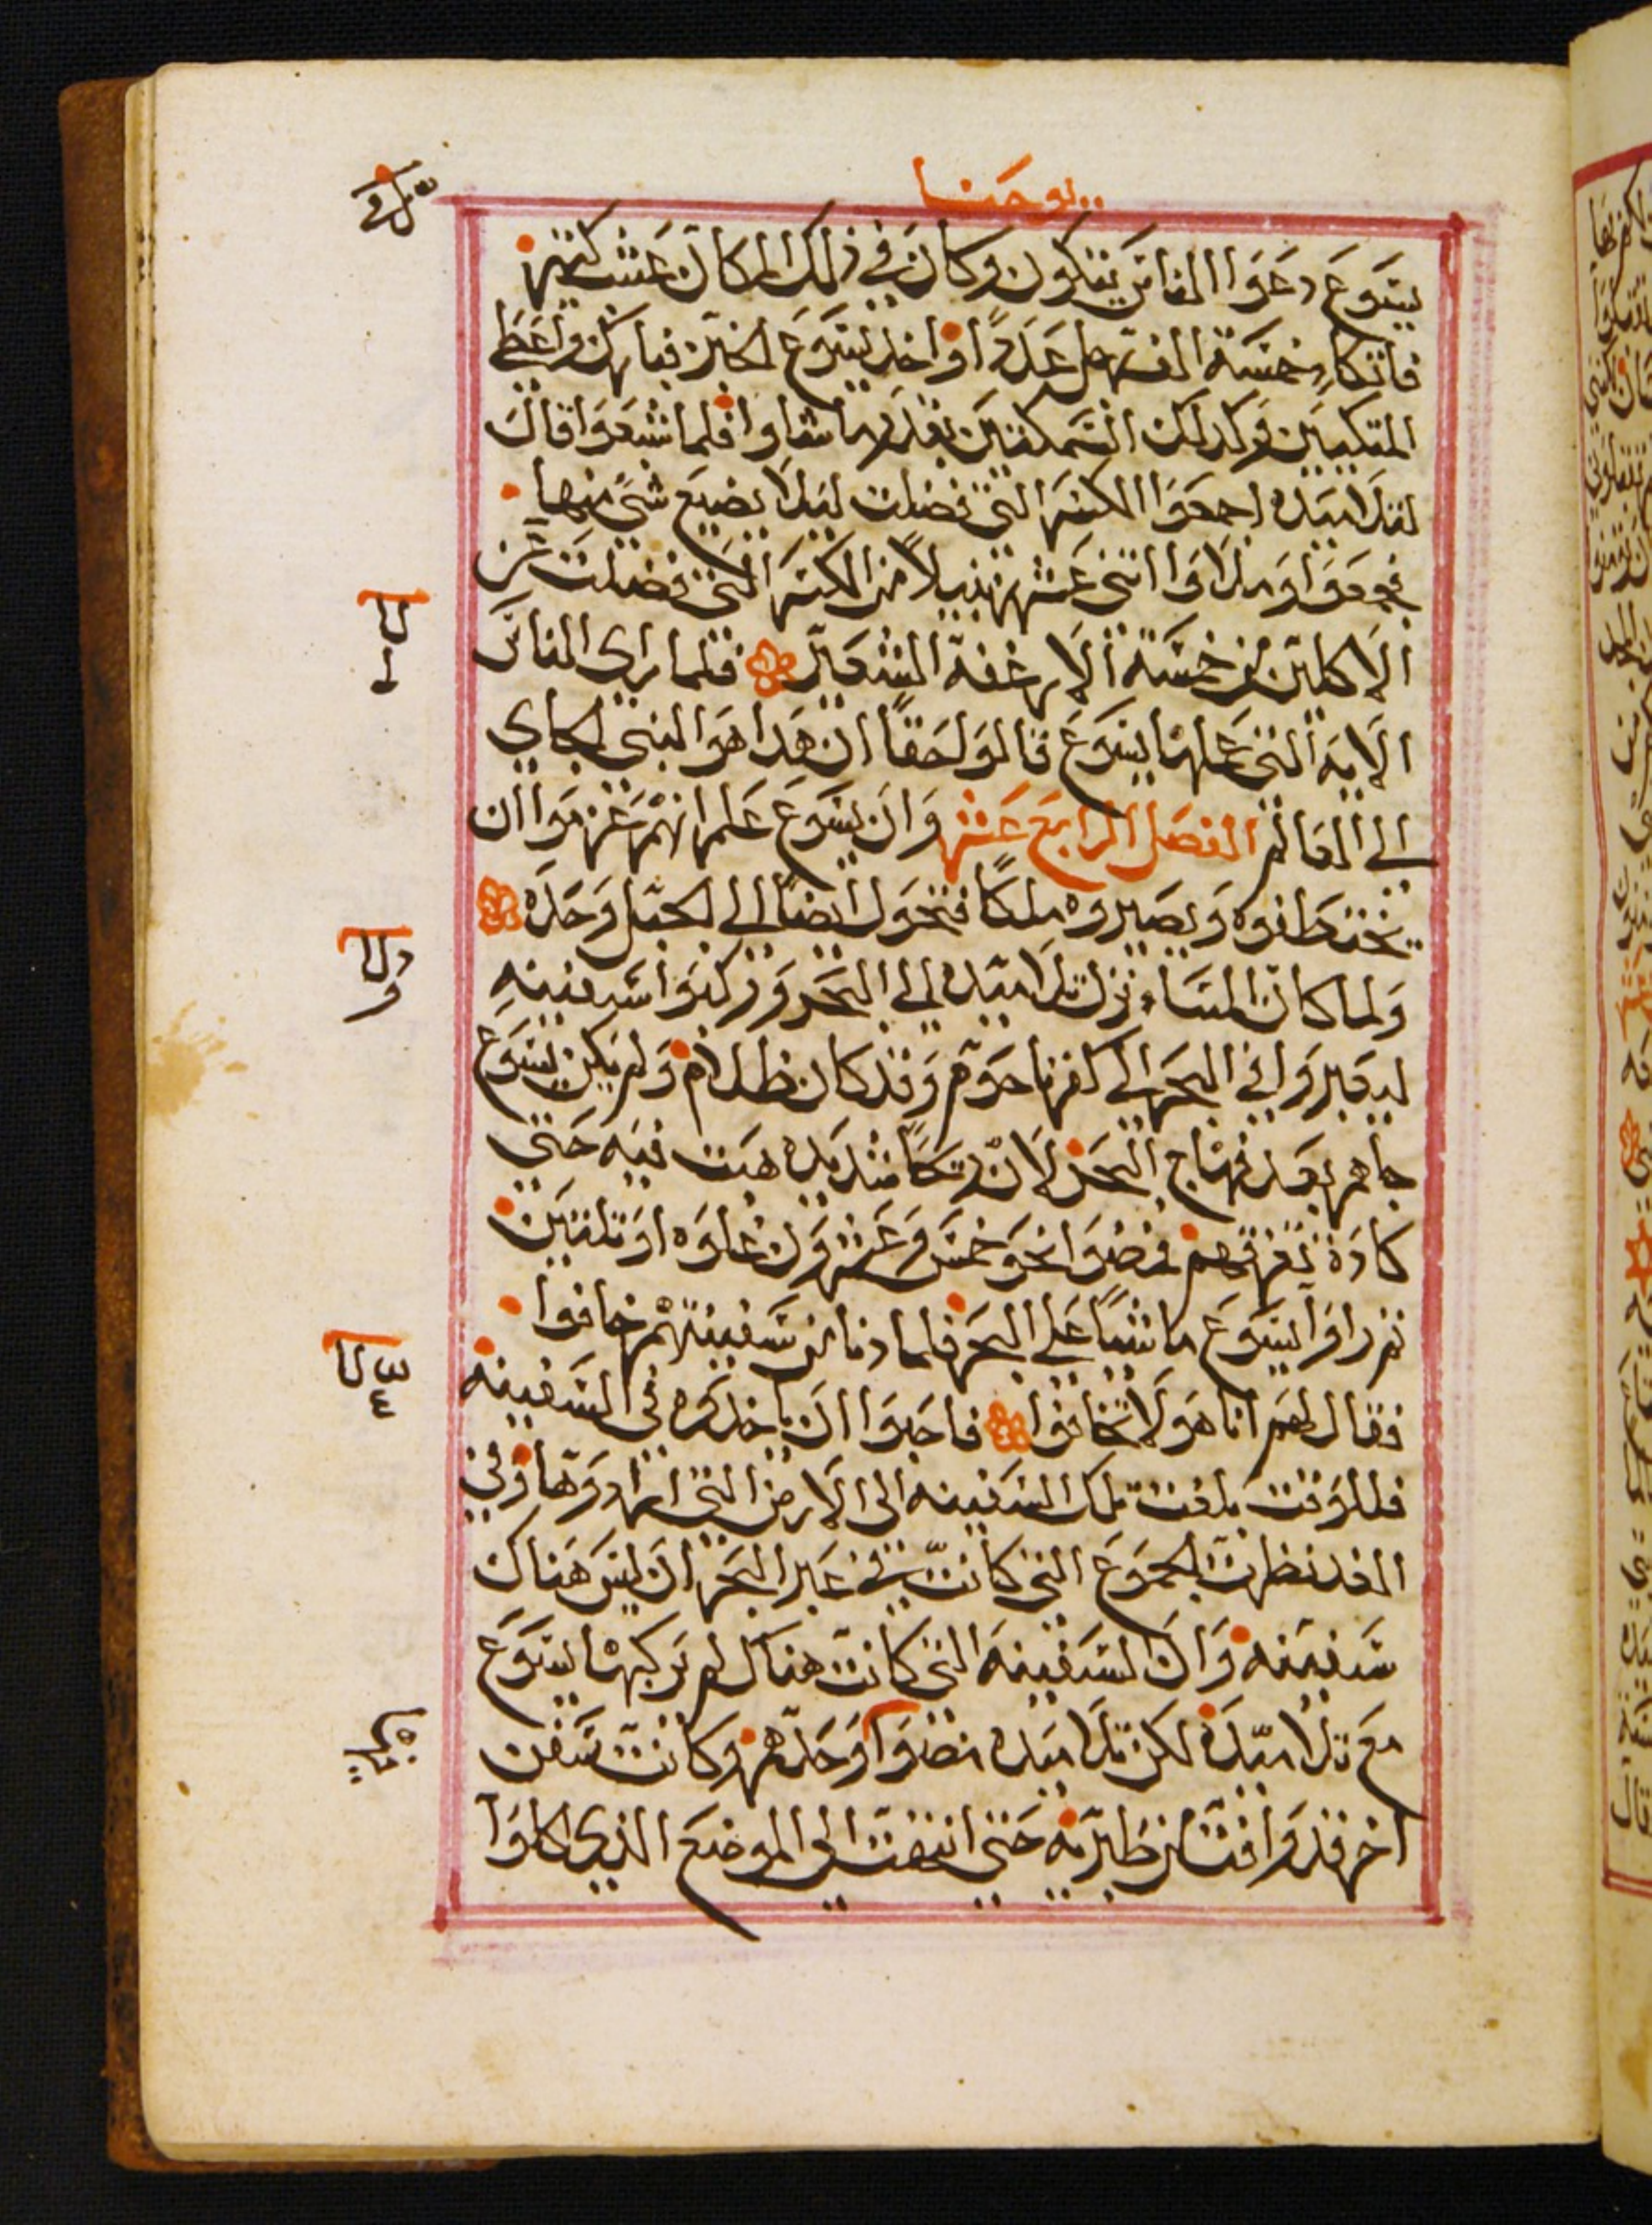 يوحنا
يسوع دعوا الناس يتكون وكان في ذلك المكان عشب كثير
فاتكا خمسة الف رجل عددا واخذ يسوع الخبز فبارك واعطى
المتكيين وكذلك السمكتين بقدر ما شاوا فلما شبعوا قال
لتلاميذه اجمعوا الكسر التي فضلت ليلا يضيع شي منها
فجمعوا وملاوا اثني عشر زنبيلا من الكسر التي فضلت عن
الاكلين من خمسة الارغفة الشعير فلما راى الناس
الاية التي عملها يسوع قالوا حقا ان هذا هو النبي الجاي
الى العالم الفصل الرابع عشر وان يسوع علم انهم عزموا ان
يختطفوه ويصيروه ملكا فتحول ايضا الى الجبل وحده
ولما كان المسا نزل تلاميذه الى البحر وركبوا سفينه
ليعبروا في البحر الى كفرناحوم وقد كان ظلام ولم يكن يسوع
جاهم بعد فهاج البحر لان ريحا شديده هبت فيه حتى
كادة تغرقهم فمضوا نحو خمس وعشرون غلوه او ثلثين
ثم راوا يسوع ماشيا على البحر فلما دنا من سفينتهم خافوا
فقال لهم انا هو لا تخافوا فاحبوا ان ياخذوه في السفينه
فللوقت بلغت تلك السفينه الى الارض التي ارادوها وفي
الغد نظرت الجموع التي كانت في عبر البحر ان ليس هناك
سفينه وان السفينه التي كانت هناك لم يركبها يسوع
مع تلاميذه لكن تلاميذه مضوا وحدهم وكانت سفن
اخر قد وافت من طبريه حتى انتهت الى الموضع الذي اكلوا